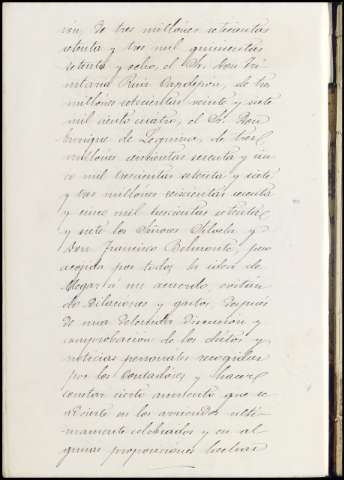 ron, de tres millones setecientas
setenta y tres mil quinientas
setenta y ocho, el Sr. Don
Ruiz Capdepón, de tres
millones seiscientas veinte y siete
mil ciento cuatro, el Sr. Don
Enrique de Lequina, de tres
millones setecientas
co mil trescientas setenta y siete
y tres millones seiscientas sesenta
y cinco mil trescientas setenta
y siete los Señores Silvela y
Don Francisco Belmonte, pero
acogida por todos la idea de
llegar á un acuerdo, evitan
do dilaciones y gastos, después
de una detenida discusión y
comprobacion de los datos y
noticias personales recogidas
por los Contadores y hacer
constar cierto aumento que se
advierte en los arriendos ulti
mamente celebrados y en al
gunas proposiciones hechas